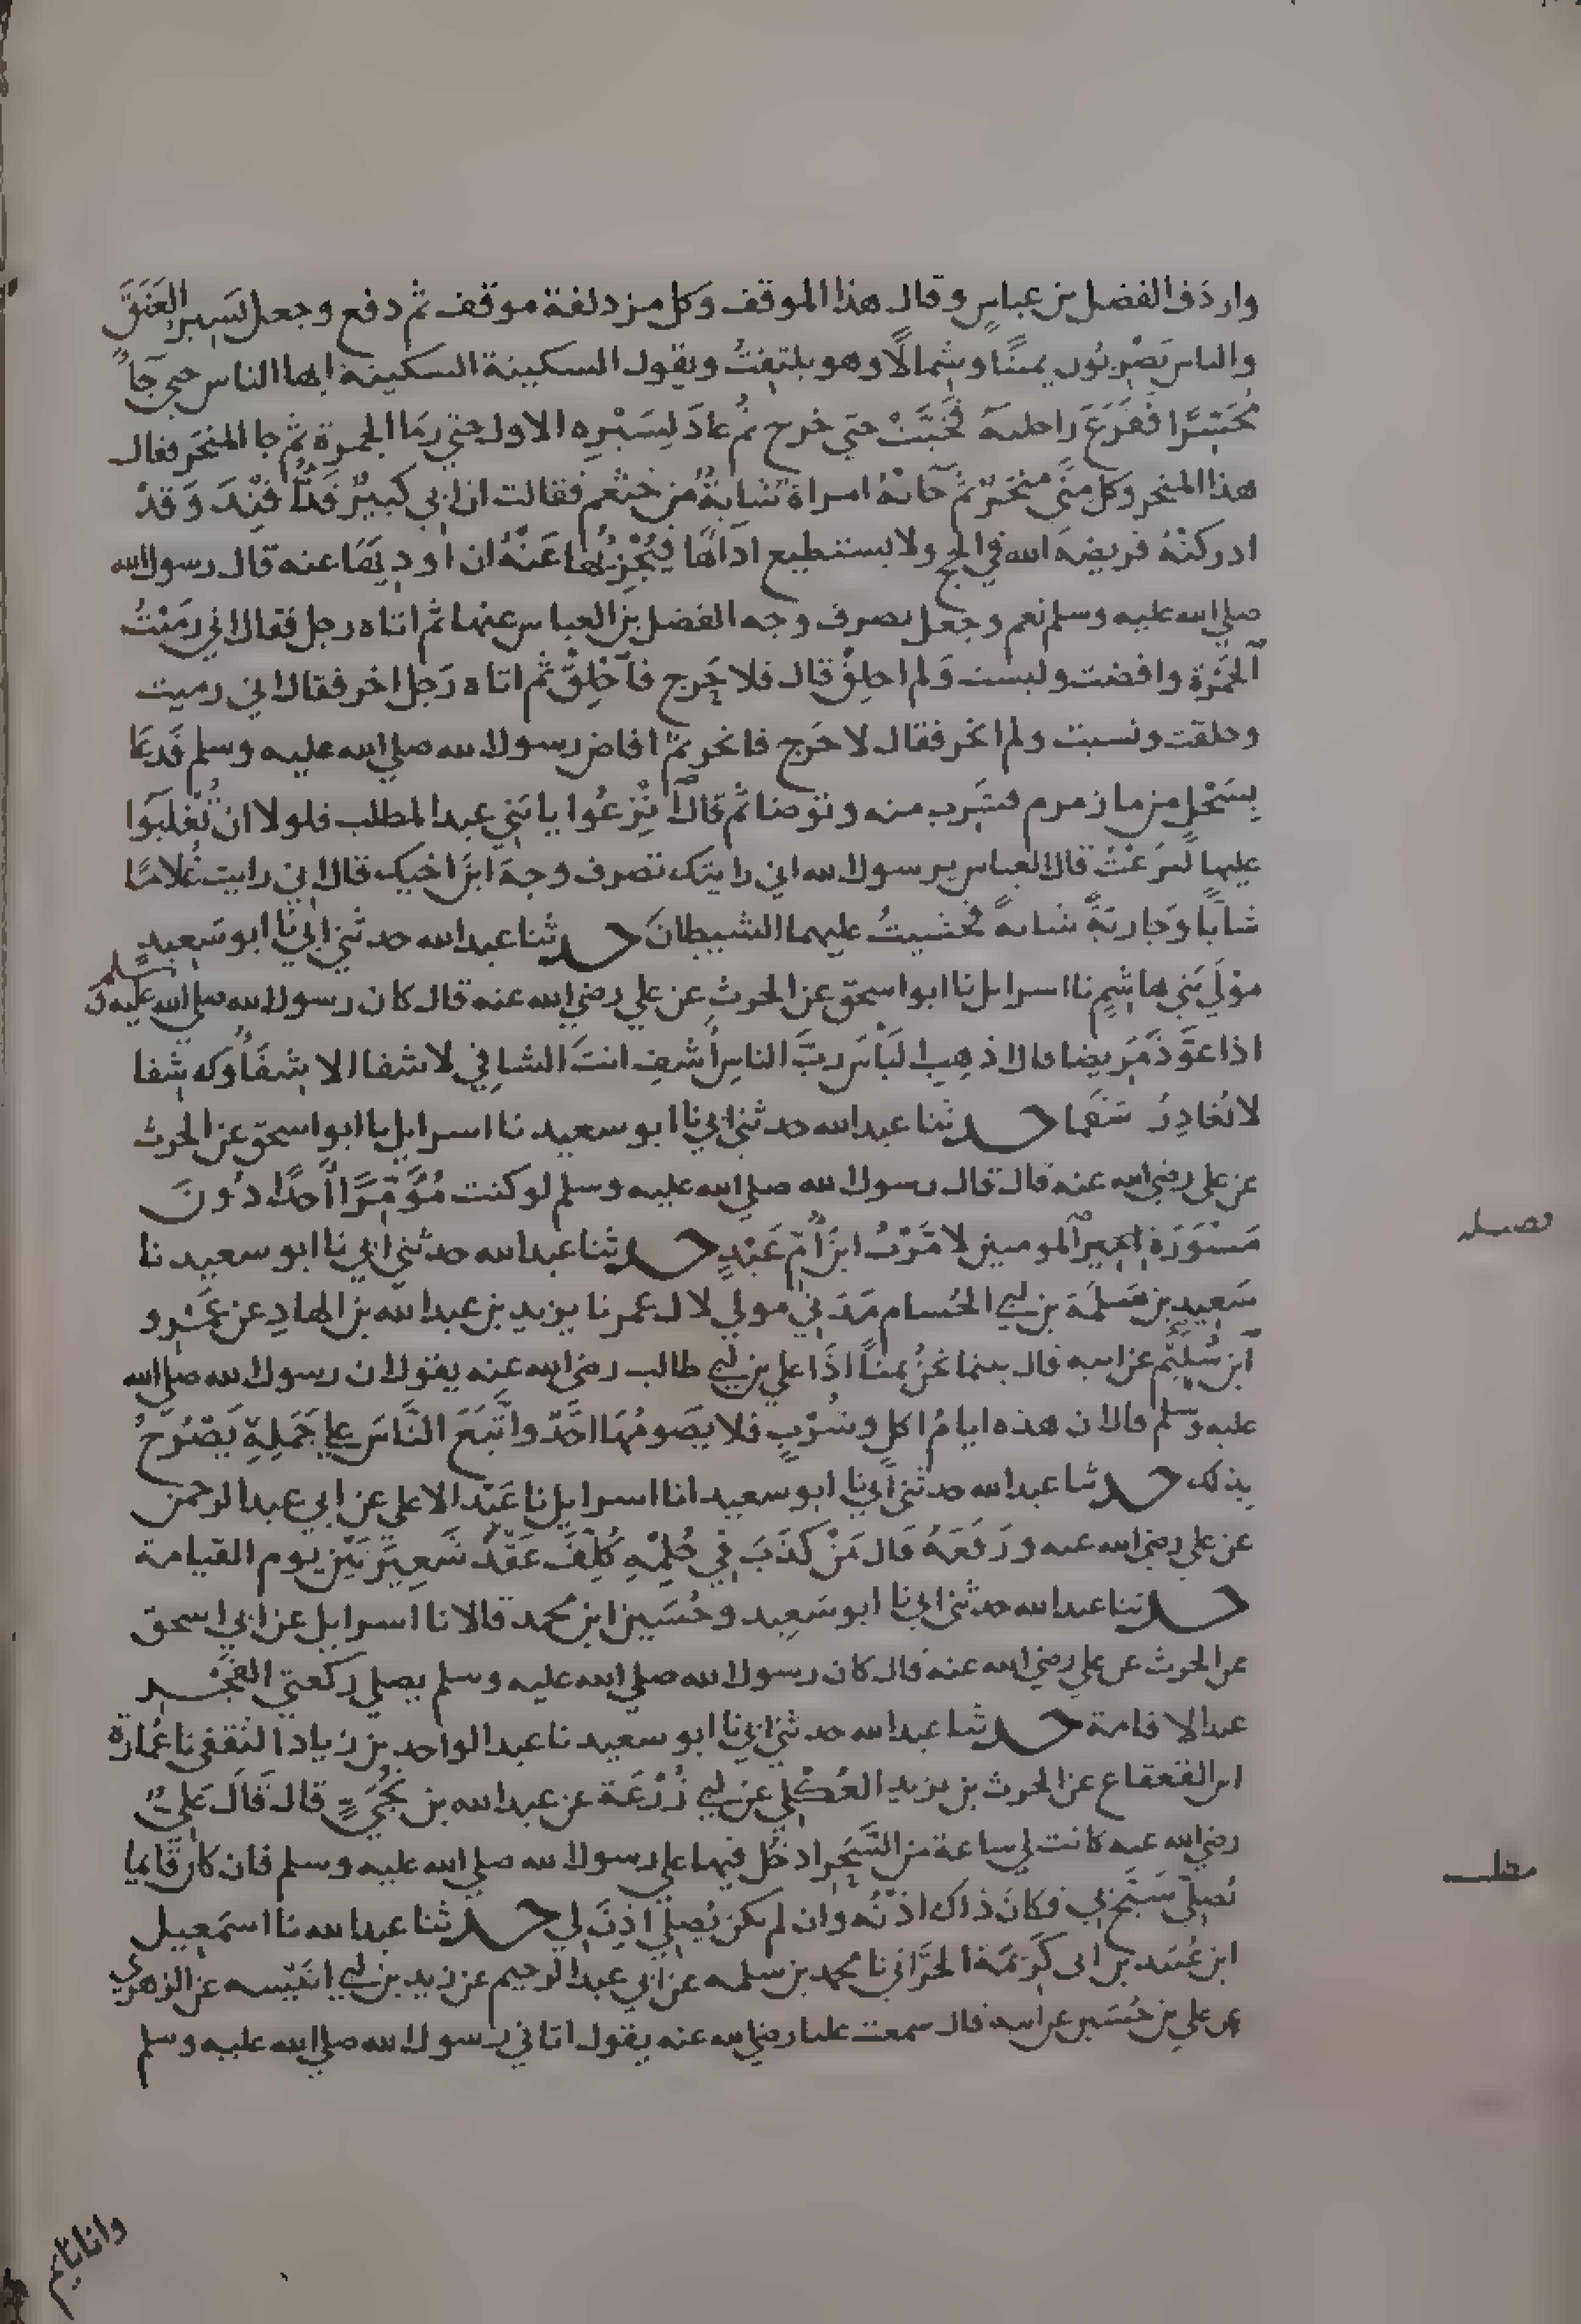 واردف الفضل بن عباس وقال هذا الموقف وكل مزدلفة موقف ثم دفع وجعل يسير العنق
والناس يضربون يمينا وشمالا وهو يلتفت ويقول السكينة السكينة ايها الناس حتي جآ
محسرا فقرع راحلته فخبت حتي خرج ثم عاد لسيره الاول حتي رما الجمرة ثم جا المنحر فقال
هذا المنحر وكل مني منحر ثم جاته امراة شابة من خثعم فقالت ان ابي كبير قد افند وقد
ادركته فريضة الله في الحج ولا يستطيع اداها فيجزي عنه ان اوديها عنه قال رسول الله
صلي الله عليه وسلم نعم وجعل يصرف وجه الفضل بن العباس عنها ثم اتاه رجل فقال اني رميت
الجمرة وافضت ولبست ولم احلق قال فلا حرج فاحلق ثم اتاه رجل اخر فقال اني رميت
وحلقت ونسيت ولم انحر فقال لا حرج فانحر ثم افاض رسول الله صلي الله عليه وسلم فدعا
بسجل من ما زمزم فشرب منه وتوضا ثم قال انزعوا يا بني عبد المطلب فلولا ان تغلبوا
عليها لنزعت قال العباس يرسول الله اني رايتك تصرف وجه ابن اخيك قال اني رايت غلاما
شابا وجارية شابة فخشيت عليهما الشيطان حدثنا عبد الله حدثني ابي نا ابو سعيد
مولي بني هاشم نا اسرايل نا ابو اسحق عن الحرث عن علي رضي الله عنه قال كان رسول الله صلي الله عليه وسلم
اذا عوذ مريضا قال اذهب الباس رب الناس اشف انت الشافي لا شفا الا شفاوكه شفا
لا يغادر سقما حدثنا عبد الله حدثني ابي نا ابو سعيد نا اسرايل نا ابو اسحق عن الحرث
عن علي رضي الله عنه قال قال رسول الله صلي الله عليه وسلم لو كنت مؤمرا احدا دون
مسورة المومنين لامرت ابن ام عبد حدثنا عبد الله حدثني ابي نا ابو سعيد نا
سعيد بن سلمة بن ابي الحسام مدني مولي لال عمر نا يزيد بن عبد الله بن الهاد عن عمرو
ابن سليم عن امه قال بينما نحن بمنا اذا علي بن ابي طالب رضي الله عنه يقول ان رسول الله صلي الله
عليه وسلم قال ان هذه ايام اكل وشرب فلا يصومها احد واتبع الناس علي جمله يصرخ
بذلك حدثنا عبد الله حدثني ابي نا ابو سعيد انا اسرايل نا عبد الاعلي عن ابي عبد الرحمن
عن علي رضي الله عنه ورفعه قال من كذب في حلمه كلف عقد شعيرتين يوم القيامة
حدثنا عبد الله حدثني ابي نا ابو سعيد وحسين ابن محمد قالا نا اسرايل عن ابي اسحق
عن الحرث عن علي رضي الله عنه قال كان رسول الله صلي الله عليه وسلم يصلي ركعتي الفجر
عند الاقامة حدثنا عبد الله حدثني ابي نا ابو سعيد نا عبد الواحد بن زياد الثقفي نا عمارة
ابن القعقاع عن الحرث بن يزيد العكلي عن ابي زرعة عن عبد الله بن نجي قال قال علي
رضي الله عنه كانت لي ساعة من السحر ادخل فيها علي رسول الله صلي الله عليه وسلم فان كان قايما
يصلي سبح بي فكان ذاك اذنه وان لم يكن يصلي اذن لي حدثنا عبد الله نا اسمعيل
ابن عبيد بن ابي كريمة الحراني نا محمد بن سلمه عن ابي عبد الرحيم عن زيد بن ابي انيسه عن الزهري
عن علي بن حسين عن ابيه قال سمعت عليا رضي الله عنه يقول اتاني رسول الله صلي الله عليه وسلم
وانا نايم